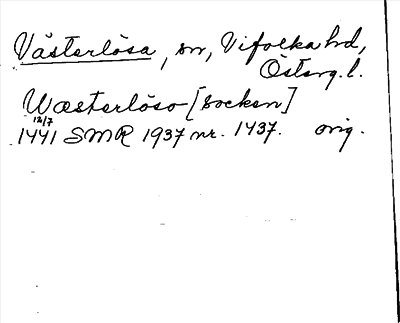 Västerlösa, sn, Vifolka hd,
Österg. l.
Wæsterløso [socken]
12/7
1441 SMR 1937 nr. 1437. orig.